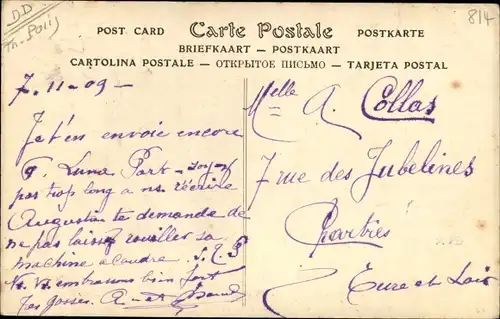 D.D
Th. Paris
814
POST CARD Carte Postale POSTKARTE
BRIEFKAART — POSTKAART
CARTOLINA POSTALE — ОТКРЫТОЕ ПИСЬМО — TARJETA POSTAL
7-11-09-
Je t'en envoie encore
Luna Park - soyez
pas trop long a ns récrire
Augustin te demande de
ne pas laisser rouiller sa
machine a coudre. S.L.P
Vs embrassons bien fort
les gosses. A- et
Melle A. Collas
7 rue des Jubelines
Chartres
Eure et Loir